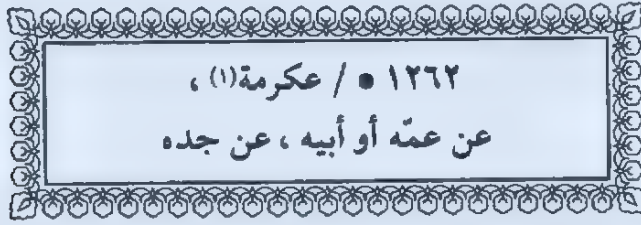 ١٢٦٢ • / عكرمة(١) ،
عن عمّه أو أبيه ، عن جده